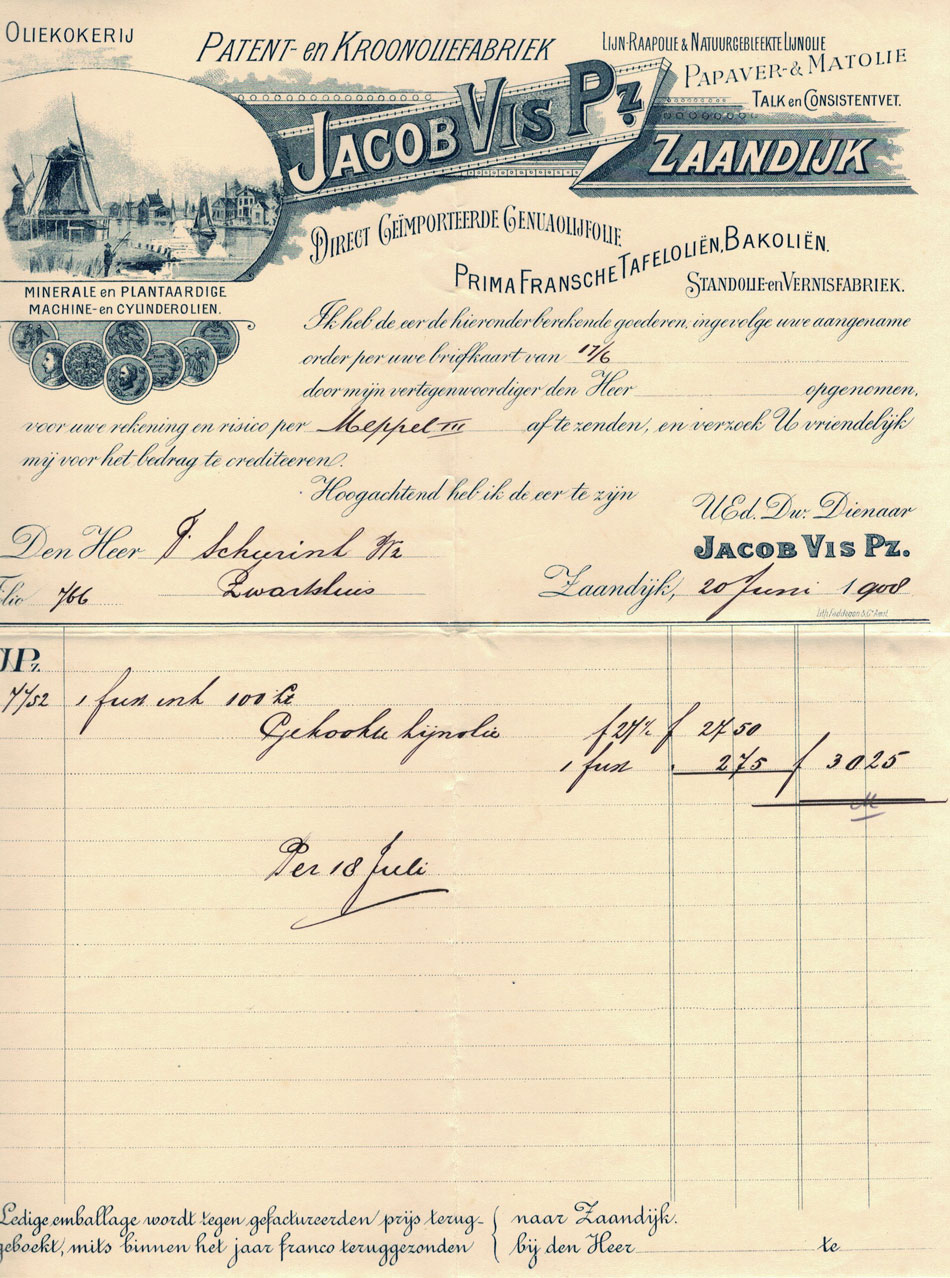 OLIEKOKERIJ
PATENT- en KROONOLIEFABRIEK
LIJN-RAAPOLIE & NATUURGEBLEEKTE LIJNOLIE
PAPAVER- & MATOLIE
TALK en CONSISTENTVET.
JACOB VIS Pz.
ZAANDIJK
DIRECT GEÏMPORTEERDE GENUAOLIJFOLIE
PRIMA FRANSCHE TAFELOLIËN, BAKOLIËN.
STANDOLIE-en VERNISFABRIEK.
MINERALE en PLANTAARDIGE
MACHINE- en CYLINDEROLIEN.
Ik heb de eer de hieronder berekende goederen, ingevolge uwe aangename
order per uwe briefkaart van 17/6
door mijn vertegenwoordiger den Heer opgenomen,
voor uwe rekening en risico per Meppel III af te zenden, en verzoek U vriendelijk
mij voor het bedrag te crediteeren.
Hoogachtend heb ik de eer te zijn
UEd. Dw. Dienaar
JACOB VIS Pz.
Den Heer F. Schurink Wz
Zwartsluis
Folio 766
Zaandijk, 20 Juni 1908
JPz.
7752 1 fust inh 100 Kg
Gekookte Lijnolie f 27½ f 27 50
1 fust . 2 75 f 30 25
Per 18 Juli
Ledige emballage wordt tegen gefactureerden prijs terug-
geboekt, mits binnen het jaar franco teruggezonden
naar Zaandijk.
bij den Heer te